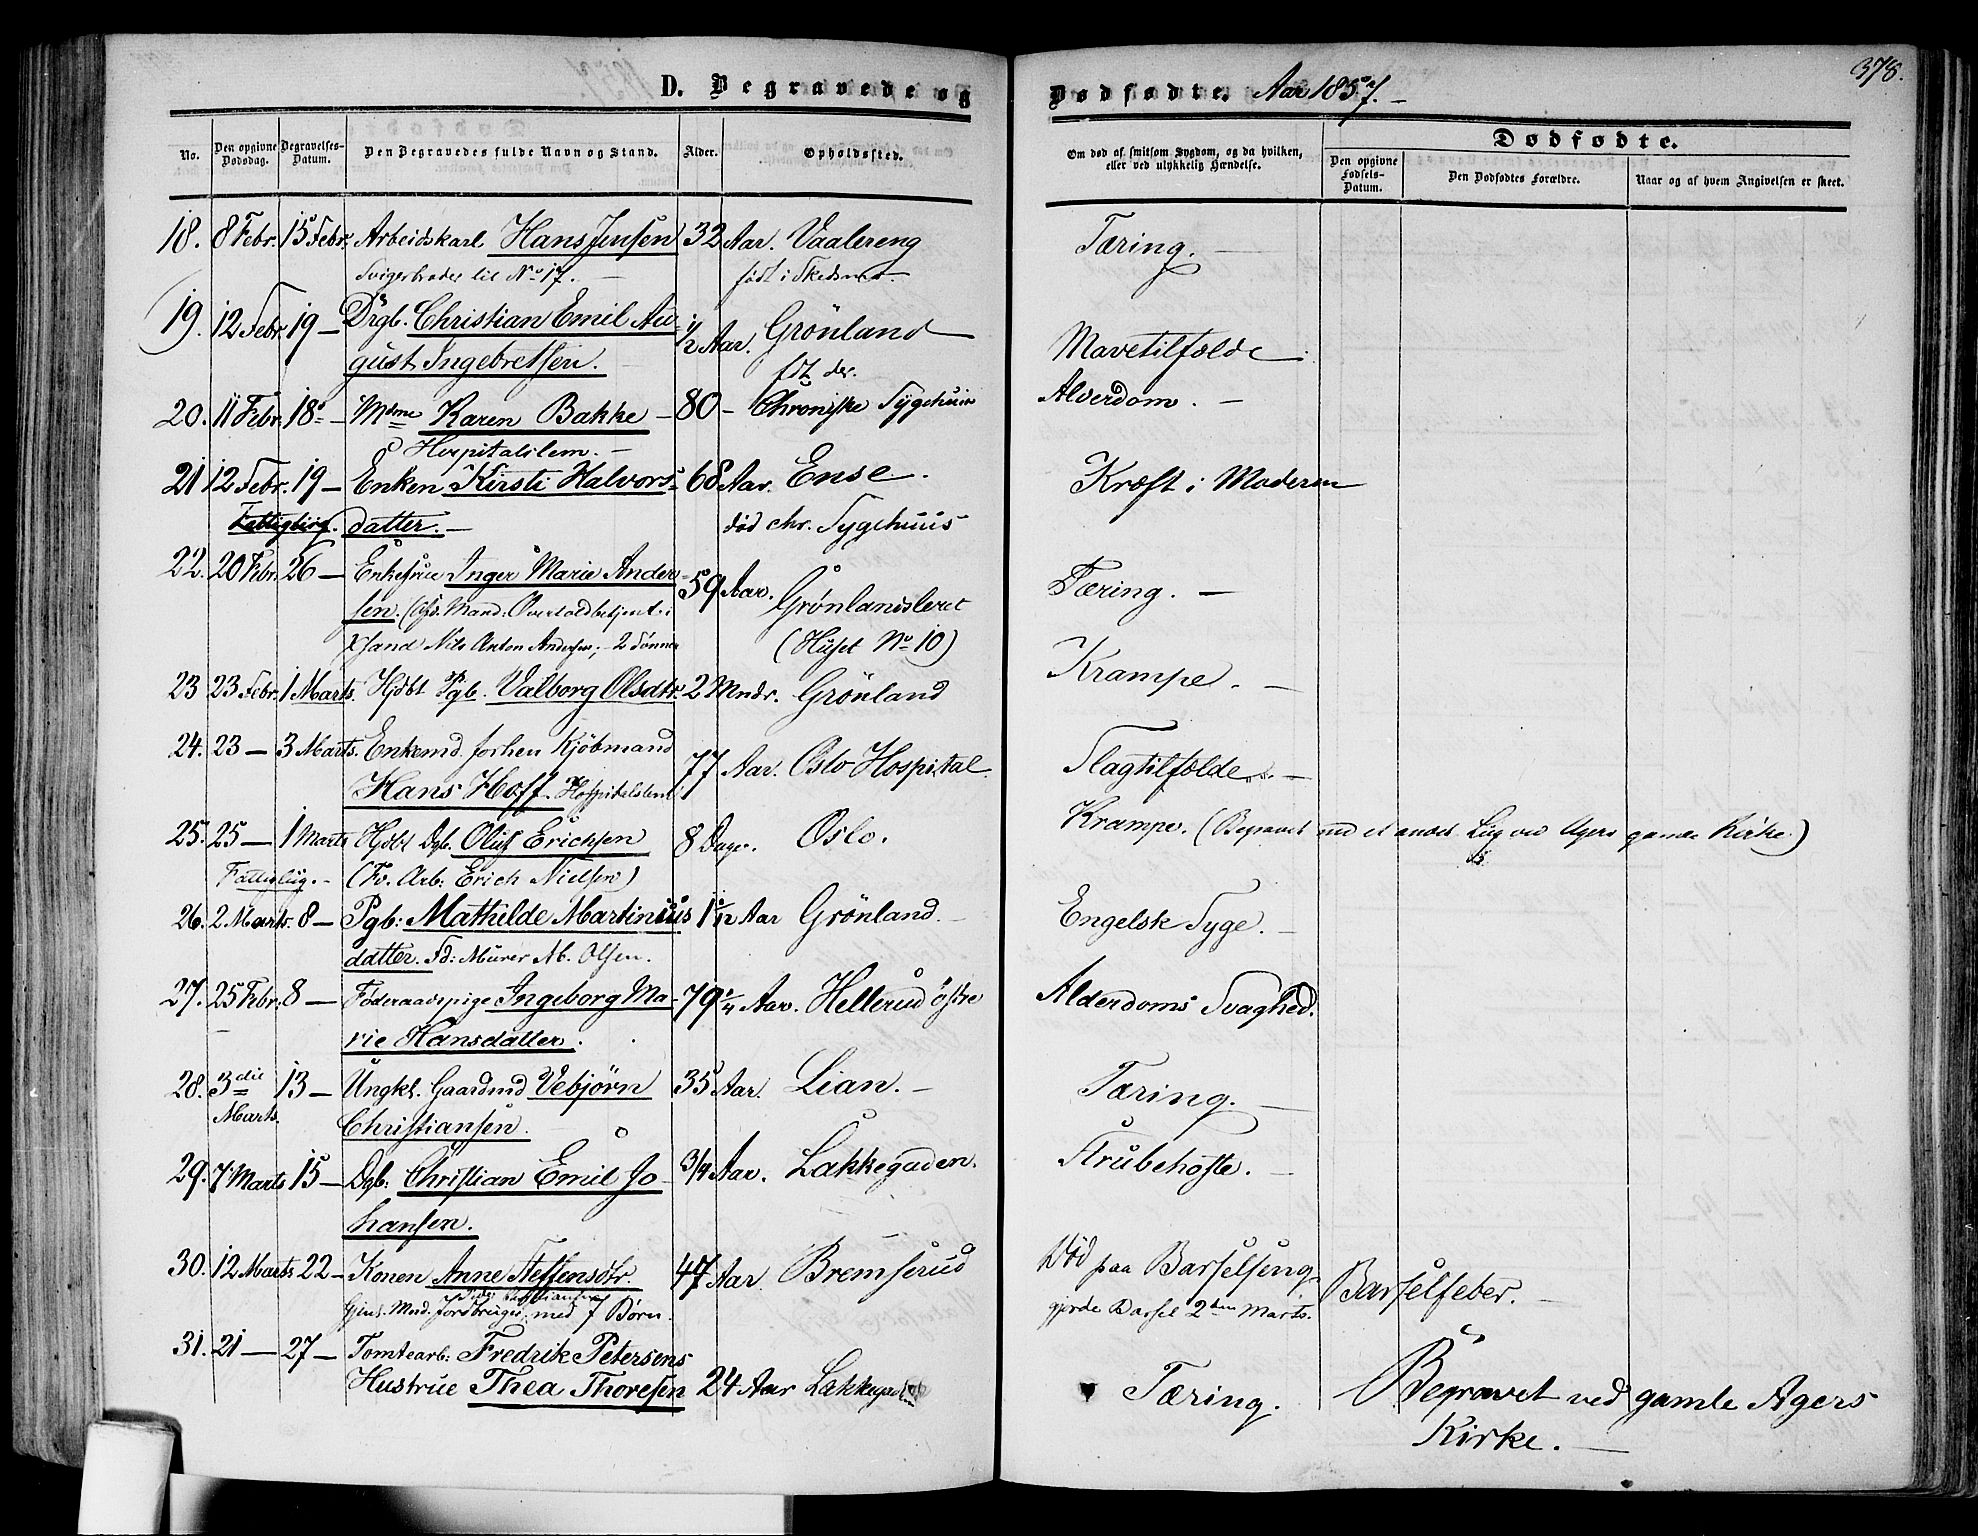 378.
D. Begravede og Dødfødte. Aar 1857.
No. Den opgivne Dødsdag. Begravelses-Datum. Den Begravedes fulde Navn og Stand. Alder. Opholdssted. Om død af smitsom Sygdom, og da hvilken, eller ved ulykkelig Hændelse. Dødfødte.
Den opgivne Fødsels-Datum. Den Dødfødtes Forældre. Naar og af hvem Angivelsen er skeet.
18. 8 Febr. 15 Febr. Arbeidskarl Hans Jensen 32 Aar. Vaalereng Tæring.
Svigerbroder til No 17. født i Skedsmo
19. 12 Febr. 19 — Drgb. Christian Emil Au- 1/2 Aar. Grönland Mavetilfælde
gust Ingebretsen. fdt. der.
20. 11 Febr. 18 — Mdme Karen Bakke — 80 — Chroniske Sygehuus Alderdom. —
Hospitalslem. —
21 12 Febr. 19 — Enken Kirsti Halvors- 68 Aar. Ense. Kræft i Moderen
datter. — død chr. Sygehuus
22. 20 Febr. 26 — Enkefrue Inger Marie Ander- 59 Aar. Grønlandsleret Tæring. —
sen. (Afd. Mand: Overtoldbetjent i
Xsand Nils Anton Andersen; — 2 Sønner (Huset No 10)
23 23 Febr. 1 Marts. Hjdbt Pgb. Valborg Olsdtr. 2 Mndr. Grönland Krampe. —
24. 23 — 3 Marts. Enkemd. forhen Kjöbmand
Hans Hoff. Hospitalslem 77 Aar. Oslo Hospital. Slagtilfælde. —
25. 25 — 1 Marts Hjdbt Dgb. Oluf Erichsen 8 Dage. Oslo. Krampe. (Begravet med et andet Liig ved Agers gamle Kirke.)
Fattigliig. — (Fv. Arb: Erich Nielsen)
26. 2 Marts. 8 — Pgb: Mathilde Martinius 1 1/12 Aar Grönland. — Engelsk Syge. —
datter. Fd: Murer M. Olsen.
27. 25 Febr. 8 — Føderaadspige Ingeborg Ma- 79 1/4 Aar. Hellerud östre Alderdoms Svaghed.
rie Hansdatter.
28. 3die 13 — Ungkl. Gaardmd Vebjörn 35 Aar. Lian. — Tæring. —
Marts. Christiansen.
29. 7 Marts 15 — Dgb: Christian Emil Jo- 3/4 Aar. Lakkegaden. Strubehoste. —
hansen.
30. 12 Marts 22 — Konen Anne Steffensdtr. 47 Aar Bremserud Død paa Barselseng, Barselfeber. —
Gjenl. Mnd. Jordbruger med 7 Børn. gjorde Barsel 2den Marts.
31. 21 — 27 — Tomtearb: Fredrik Petersens
Hustrue Thea Thoresen 24 Aar Lakkegaden Tæring. Begravet ved gamle Agers
Kirke. —